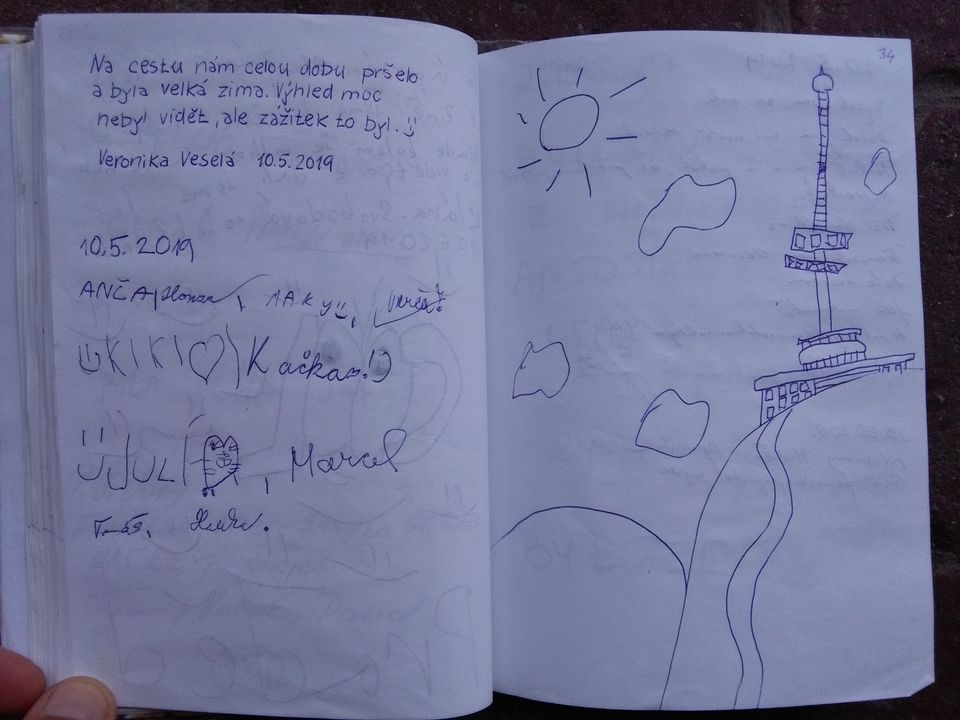 Na cestu nám celou dobu pršelo
a byla velká zima. Výhled moc
nebyl vidět, ale zážitek to byl.
Veronika Veselá 10.5.2019
10.5.2019
ANČA, Honza,
KIKI Kačka
JULÍ, Marcel
34